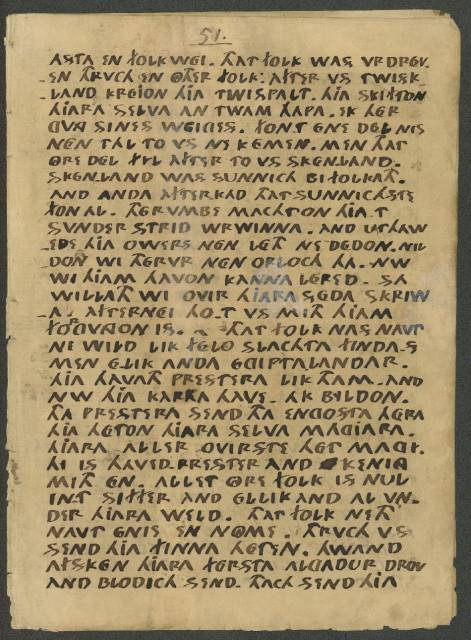 51.
ASTA EN FOLK WEI. THAT FOLK WAS VRDREV.
EN THRVCH EN OTHER FOLK. AFTER VS TWISK-
LAND KREJON HIA TWISPALT. HIA SKIFTON
HIARA SELVA AN TWAM HAPA. EK HER
GVNG SINES WEIGES. FONT ENE DEL NIS
NEN TAL TO VS NE KEMEN. MEN THAT
ORE DEL FYL AFTER TO VS SKENLAND.
SKENLAND WAS SUNNICH BIFOLKATH.
AND ANDA AFTERKAD THAT SUNNICHSTE
FON AL. THERVMBE MACHTON HIA T
SVNDER STRID WRWINNA. AND UTHAW
EDE HIA OWERS NEN LETH NE DEDON. NIL
DON WI THERVR NEN ORLOCH HA. NW
WI HIAM HAVON KANNA LERED. SA
WILLATH WI OVIR HIARA SEDA SKRIW
A. AFTERNEI HO-T VS MITH HIAM
FORGVNGON IS. THAT FOLK NAS NAVT
NE WILD LIK FELO SLACHTA FINDA.S
MEN ELIK ANDA EGIPTALANDAR.
HIA HAVATH PRESTERA LIK THAM. AND
NW HIA KARKA HAVE. AK BILDON.
THA PRESTERA SEND THA ENGOSTA HERA
HIA HETON HIARA SELVA MAGIARA.
HIARA ALLER OVIRSTE HET MAGY.
HI IS HAVED PRESTER AND KENING
MITH EN. ALLET ORE FOLK IS NUL
INT SIFFER AND ELLIK AND AL VN.
DER HIARA WELD. THAT FOLK NETH
NAVT ENIS EN NOME. THRVCH VS
SEND HIA FINNA HETEN. HWAND
AFSKEN HIARA FERSTA ALGADUR DROV
AND BLODICH SEND. THACH SEND HIA